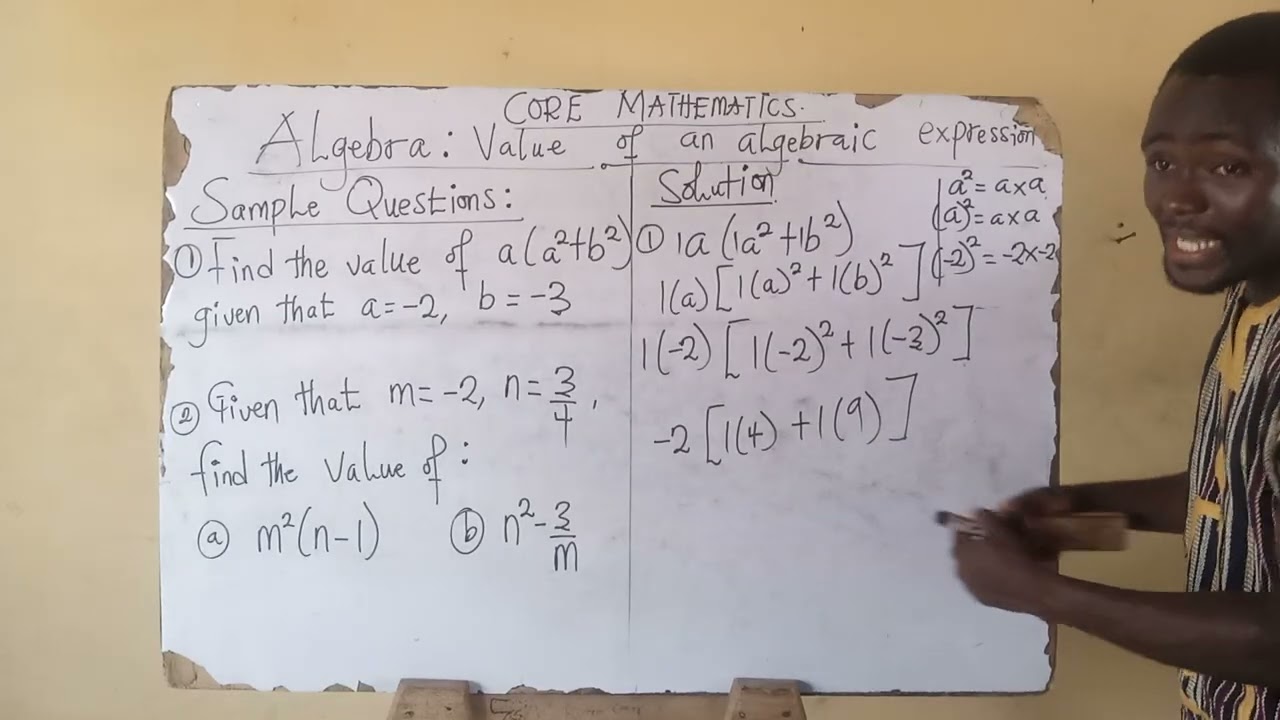 CORE MATHEMATICS.
Algebra: Value of an algebraic expression
Sample Questions:
① Find the value of a(a²+b²)
given that a=-2, b=-3
② Given that m=-2, n=3/4,
find the value of:
ⓐ m²(n-1) ⓑ n²-3/m
Solution
① 1a(1a²+1b²)
1(a)[1(a)²+1(b)²]
1(-2)[1(-2)²+1(-3)²]
-2[1(4)+1(9)]
a²=a×a
(a)²=a×a
(-2)²=-2×-2